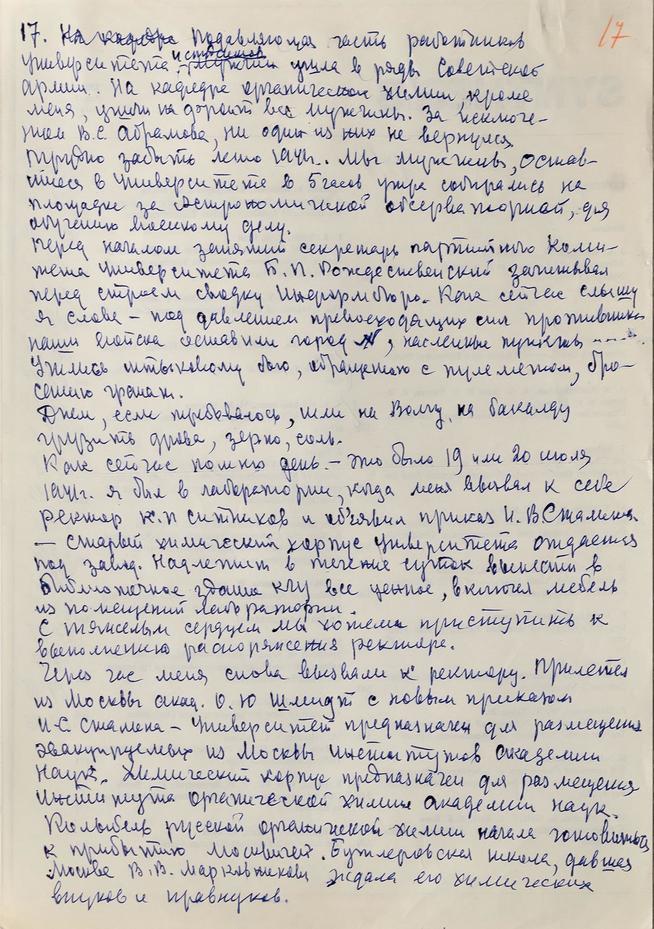 17
17. На кафедре Подавляющая часть работников
и студентов
университета, мужчин ушла в ряды Советской
армии. На кафедре органической химии, кроме
меня, ушли на фронт все мужчины. За исключе-
нием В.С. Абрамова, ни один из них не вернулся
Трудно забыть лето 1941г. Мы мужчины, остав-
шиеся в университете в 5 часов утра собирались на
площадке за Астрономической обсерваторией, для
обучению военному делу.
Перед началом занятий секретарь партийного коми-
тета университета Б.П. Рождественский зачитывал
перед строем сводку Информбюро. Как сейчас слышу
я слова – под давлением превосходящих сил противника
наши войска оставили город N, населенные пункты .....
Учились штыковому бою, обращению с пулеметом, бро-
санию гранат.
Днем, если требовалось, шли на Волгу, на бакалду
грузить дрова, зерно, соль.
Как сейчас помню день – это было 19 или 20 июля
1941г. я был в лаборатории, когда меня вызвал к себе
ректор К.П Ситников и объявил приказ И.В Сталина
– старый химический корпус университета отдается
под завод. Надлежит в течение суток вынести в
библиотечное здание КГУ все ценное, включая мебель
из помещений лаборатории.
С тяжелым сердцем мы хотели приступить к
выполнению распоряжения ректора.
Через час меня снова вызвали к ректору. Прилетел
из Москвы акад. О.Ю Шмидт с новым приказом
И.С. Сталина – Университет предназначен для размещения
эвакуируемых из Москвы институтов академии
наук. Химический корпус предназначен для размещения
института органической химии академии наук.
Колыбель русской органической химии начала готовиться
к прибытию москвичей. Бутлеровская школа, давшая
Москве В.В. Марковникова ждала его химических
внуков и правнуков.